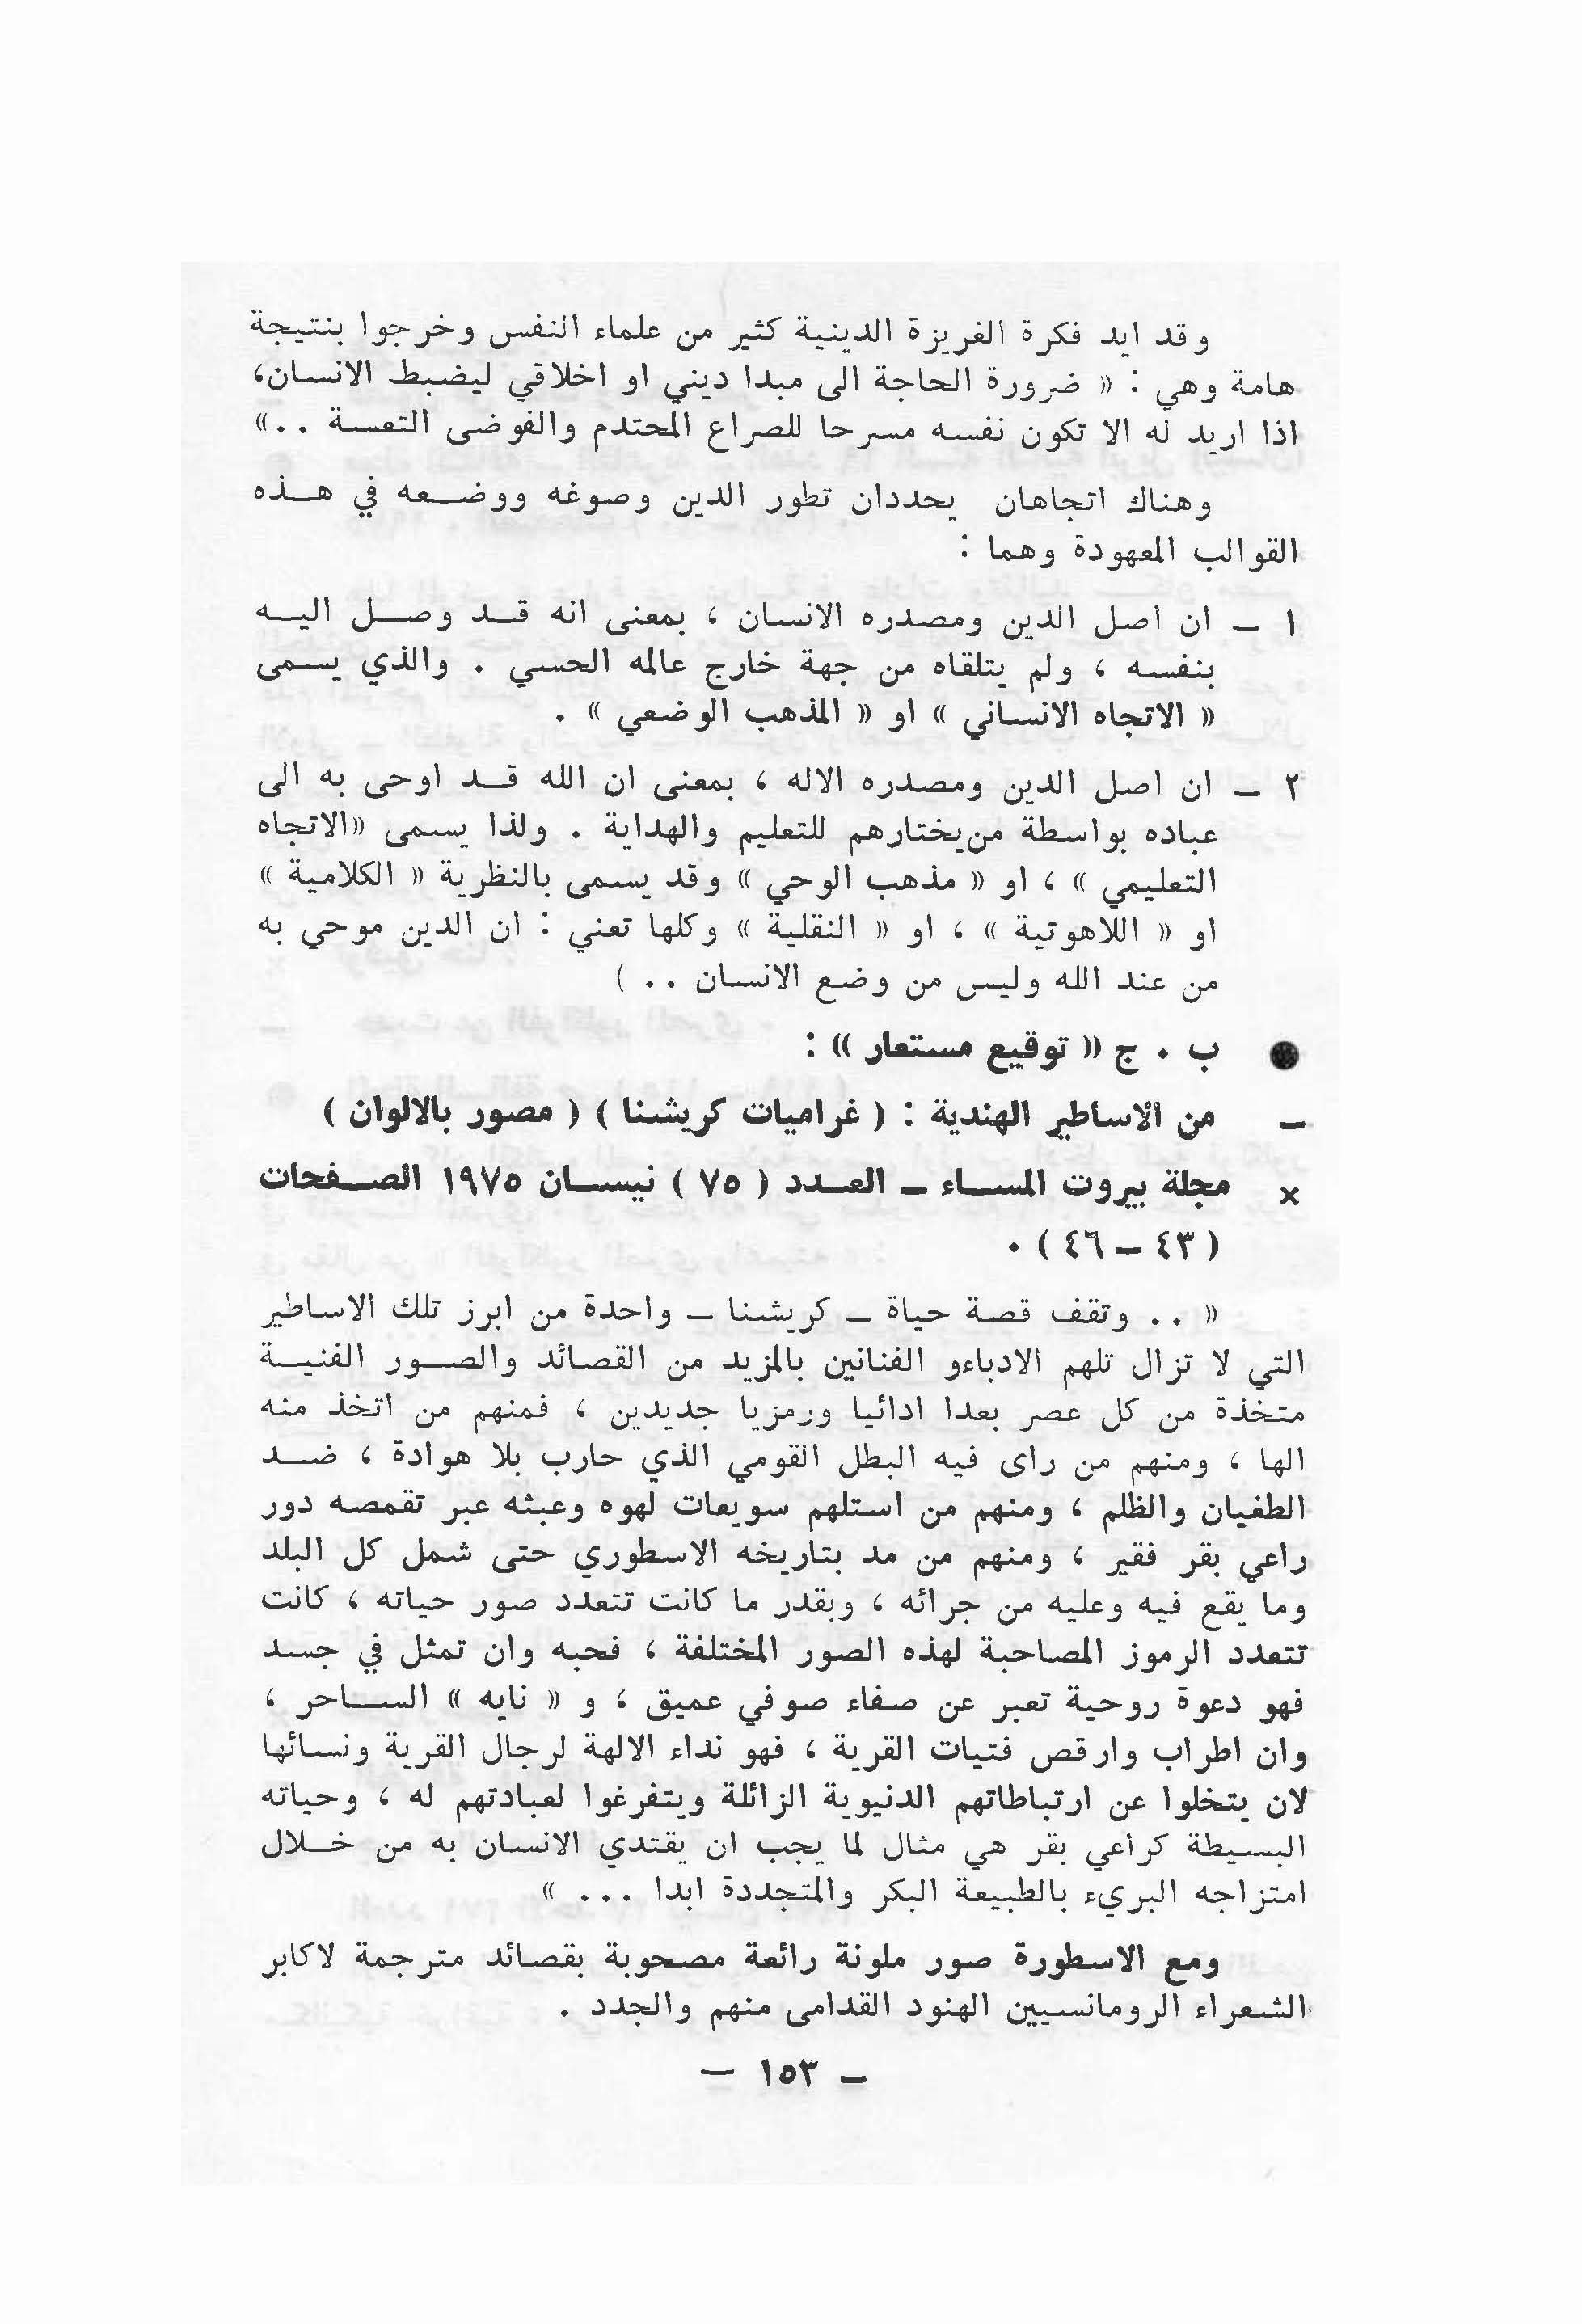 وقد ايد فكرة الغريزة الدينية كثير من علماء النفس وخرجوا بنتيجة
هامة وهي : « ضرورة الحاجة الى مبدا ديني او اخلاقي ليضبط الانسان،
اذا اريد له الا تكون نفسه مسرحا للصراع المحتدم والفوضى التعسة ..»
وهناك اتجاهان يحددان تطور الدين وصوغه ووضعه في هذه
القوالب المعهودة وهما :
١ – ان اصل الدين ومصدره الانسان ، بمعنى انه قد وصل اليه
بنفسه ، ولم يتلقاه من جهة خارج عالمه الحسي . والذي يسمى
« الاتجاه الانساني » او « المذهب الوضعي » .
٢ – ان اصل الدين ومصدره الاله ، بمعنى ان الله قد اوحى به الى
عباده بواسطة من يختارهم للتعليم والهداية . ولذا يسمى «الاتجاه
التعليمي » ، او « مذهب الوحي » وقد يسمى بالنظرية « الكلامية »
او « اللاهوتية » ، او « النقلية » وكلها تعني : ان الدين موحي به
من عند الله وليس من وضع الانسان .. )
● ب . ج « توقيع مستعار » :
– من الاساطير الهندية : ( غراميات كريشنا ) ( مصور بالالوان )
× مجلة بيروت المساء – العدد ( ٧٥ ) نيسان ١٩٧٥ الصفحات
( ٤٣ – ٤٦ ) .
« .. وتقف قصة حياة – كريشنا – واحدة من ابرز تلك الاساطير
التي لا تزال تلهم الادباءو الفنانين بالمزيد من القصائد والصور الفنية
متخذة من كل عصر بعدا ادائيا ورمزيا جديدين ، فمنهم من اتخذ منه
الها ، ومنهم من راى فيه البطل القومي الذي حارب بلا هوادة ، ضد
الطغيان والظلم ، ومنهم من استلهم سويعات لهوه وعبثه عبر تقمصه دور
راعي بقر فقير ، ومنهم من مد بتاريخه الاسطوري حتى شمل كل البلد
وما يقع فيه وعليه من جرائه ، وبقدر ما كانت تتعدد صور حياته ، كانت
تتعدد الرموز المصاحبة لهذه الصور المختلفة ، فحبه وان تمثل في جسد
فهو دعوة روحية تعبر عن صفاء صوفي عميق ، و « نايه » الساحر ،
وان اطراب وارقص فتيات القرية ، فهو نداء الالهة لرجال القرية ونسائها
لان يتخلوا عن ارتباطاتهم الدنيوية الزائلة ويتفرغوا لعبادتهم له ، وحياته
البسيطة كراعي بقر هي مثال لما يجب ان يقتدي الانسان به من خلال
امتزاجه البريء بالطبيعة البكر والمتجددة ابدا ... »
ومع الاسطورة صور ملونة رائعة مصحوبة بقصائد مترجمة لاكابر
الشعراء الرومانسيين الهنود القدامى منهم والجدد .
– ١٥٣ –